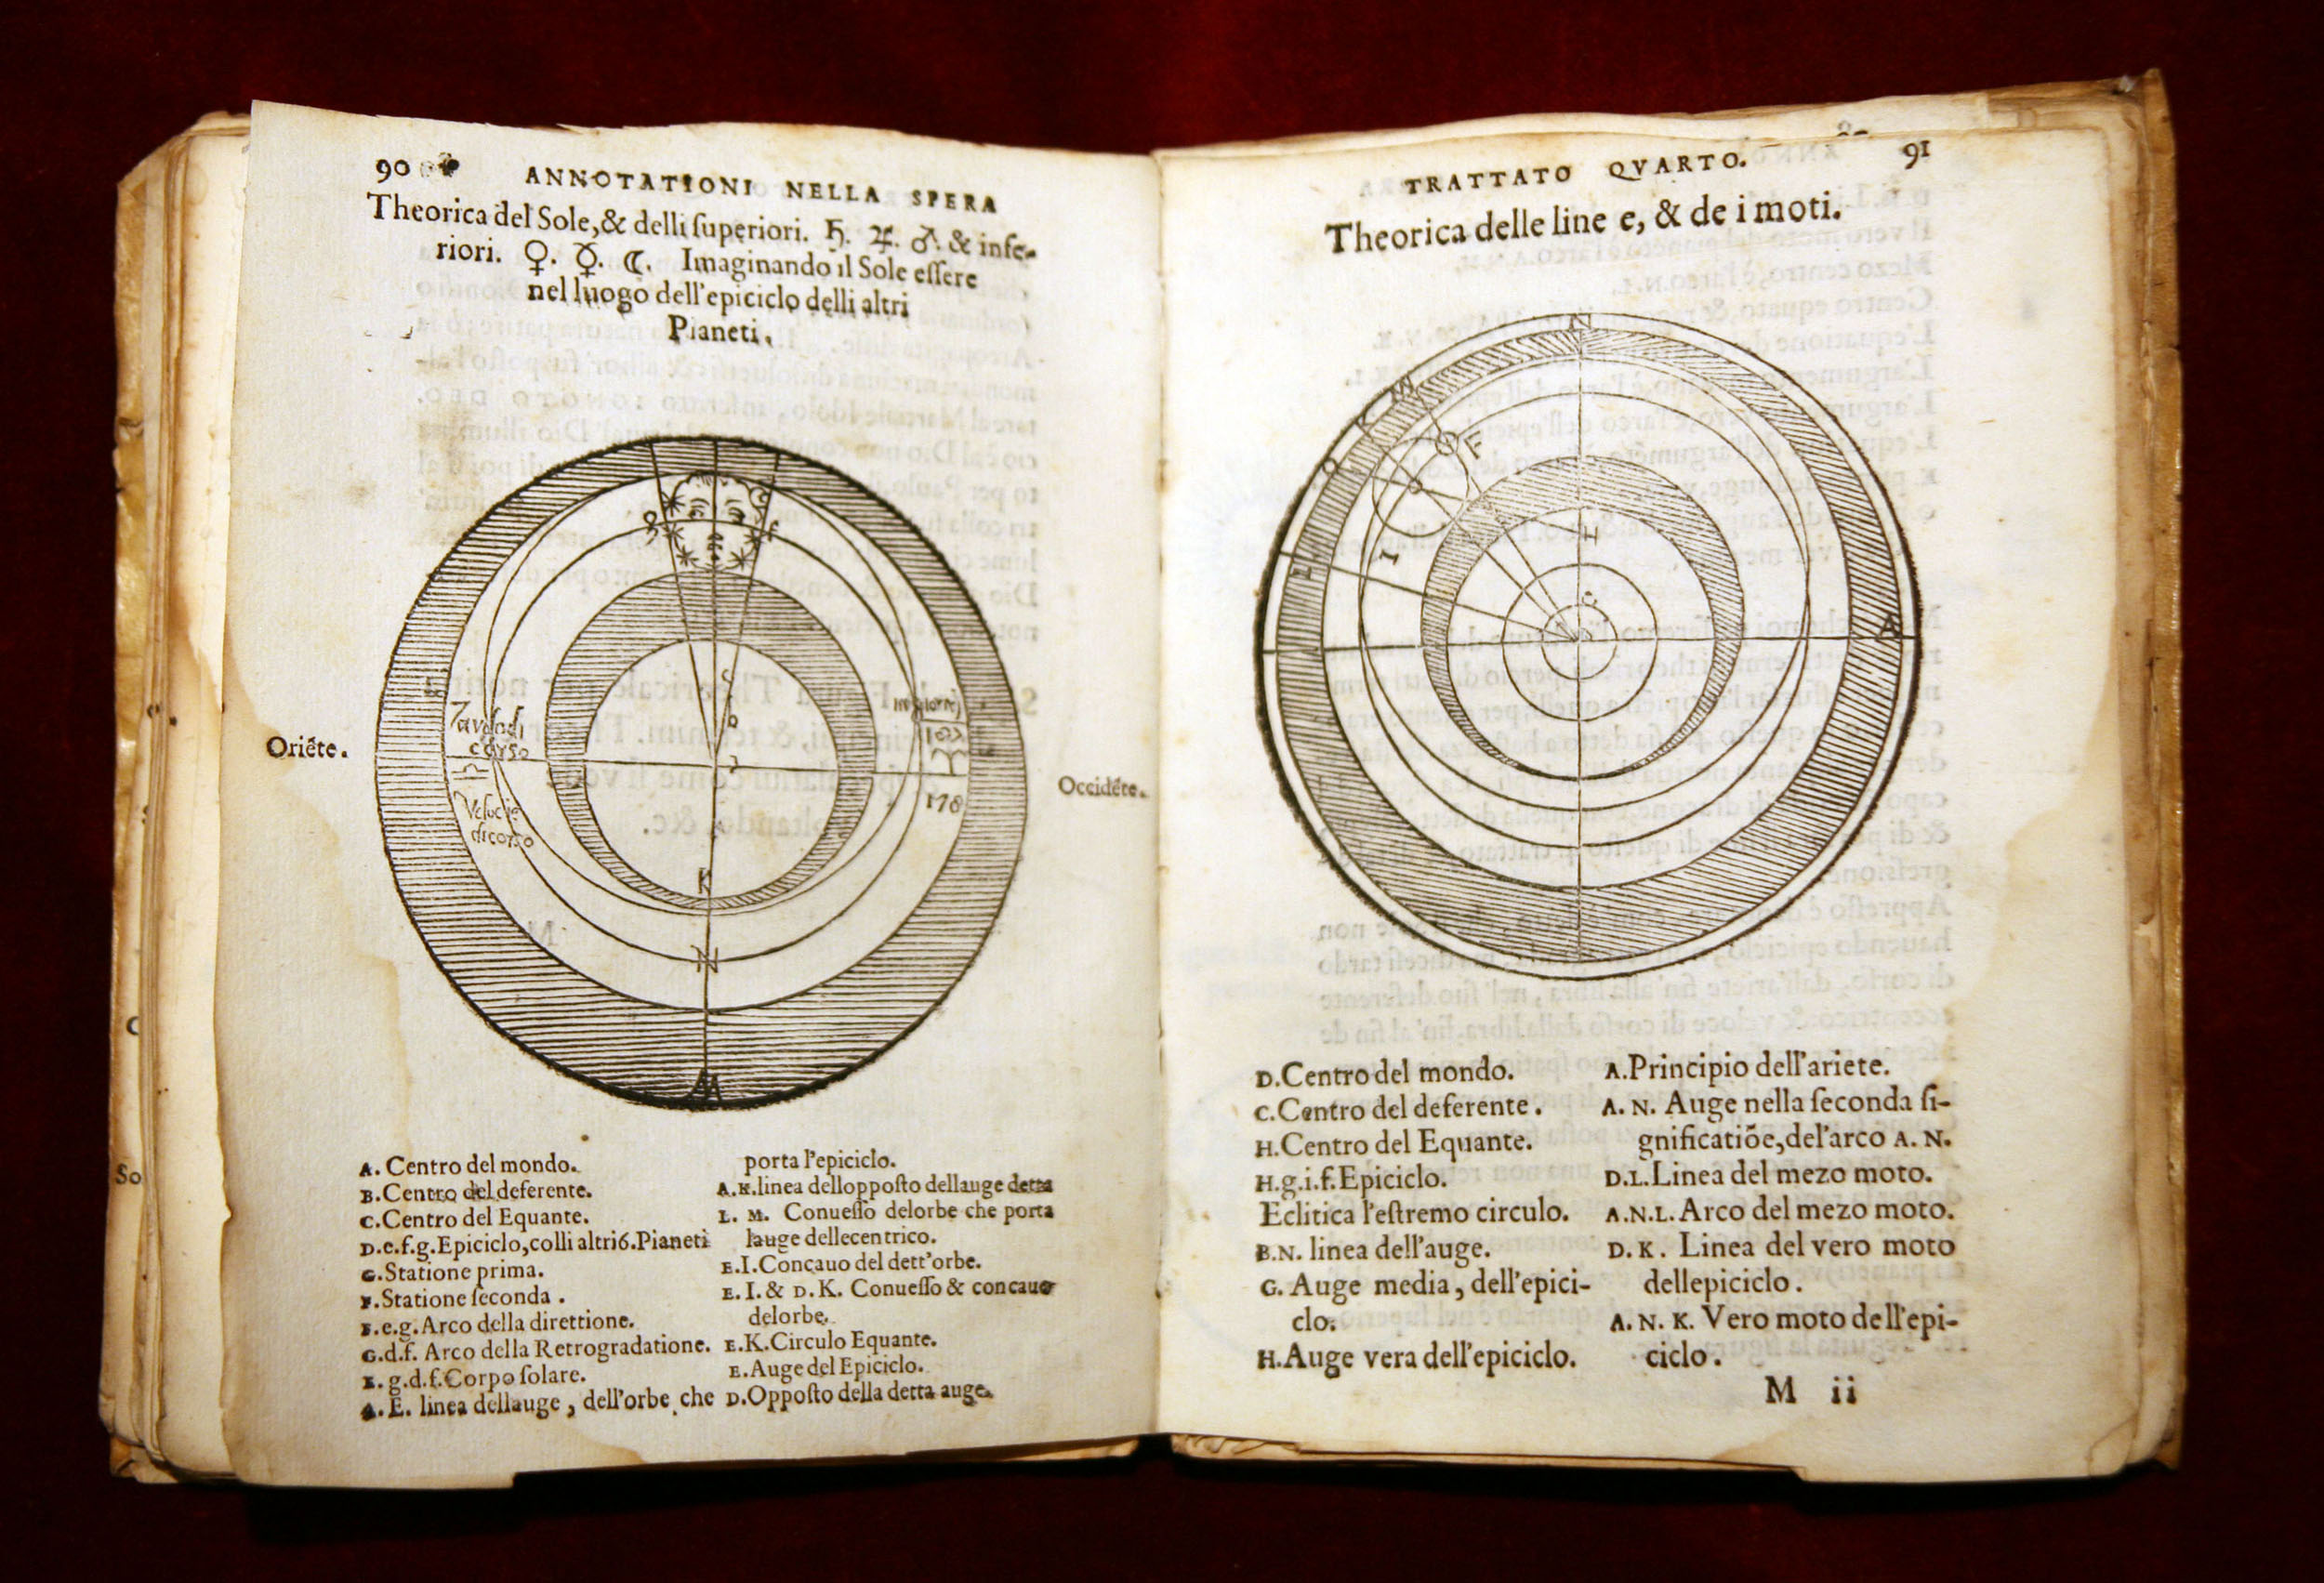 90
ANNOTATIONI NELLA SPERA
Theorica del Sole, & delli ſuperiori. ♄. ♃. ♂. & infe-
riori. ♀. ☿. ☾. Imaginando il Sole eſſere
nel luogo dell'epiciclo delli altri
Pianeti.
Oriẽte.
Tardo di
corso
♎
Veloce
di corso
187
♈
178
C
B
K
N
L
M
Occidẽte.
A. Centro del mondo.
B. Centro del deferente.
C. Centro del Equante.
D.e.f.g. Epiciclo, colli altri 6. Pianeti
G. Statione prima.
F. Statione ſeconda.
F.e.g. Arco della direttione.
G.d.f. Arco della Retrogradatione.
E. g.d.f. Corpo ſolare.
A. E. linea dellauge, dell'orbe che
porta l'epiciclo.
A.K. linea delloppoſto dellauge detta
L. M. Conueſſo delorbe che porta
lauge dellecentrico.
E.I. Concauo del dett'orbe.
E. I. & D. K. Conueſſo & concauo
delorbe.
E.K. Circulo Equante.
E. Auge del Epiciclo.
D. Oppoſto della detta auge.
TRATTATO QVARTO.
91
Theorica delle line e, & de i moti.
N
F
I
H
C
D
A
D. Centro del mondo.
C. Centro del deferente.
H. Centro del Equante.
H.g.i.f. Epiciclo.
Eclitica l'eſtremo circulo.
B.N. linea dell'auge.
G. Auge media, dell'epici-
clo.
H. Auge vera dell'epiciclo.
A. Principio dell'ariete.
A. N. Auge nella ſeconda ſi-
gnificatiõe, del'arco A. N.
D.L. Linea del mezo moto.
A.N.L. Arco del mezo moto.
D. K. Linea del vero moto
dellepiciclo.
A. N. K. Vero moto dell'epi-
ciclo.
M ii